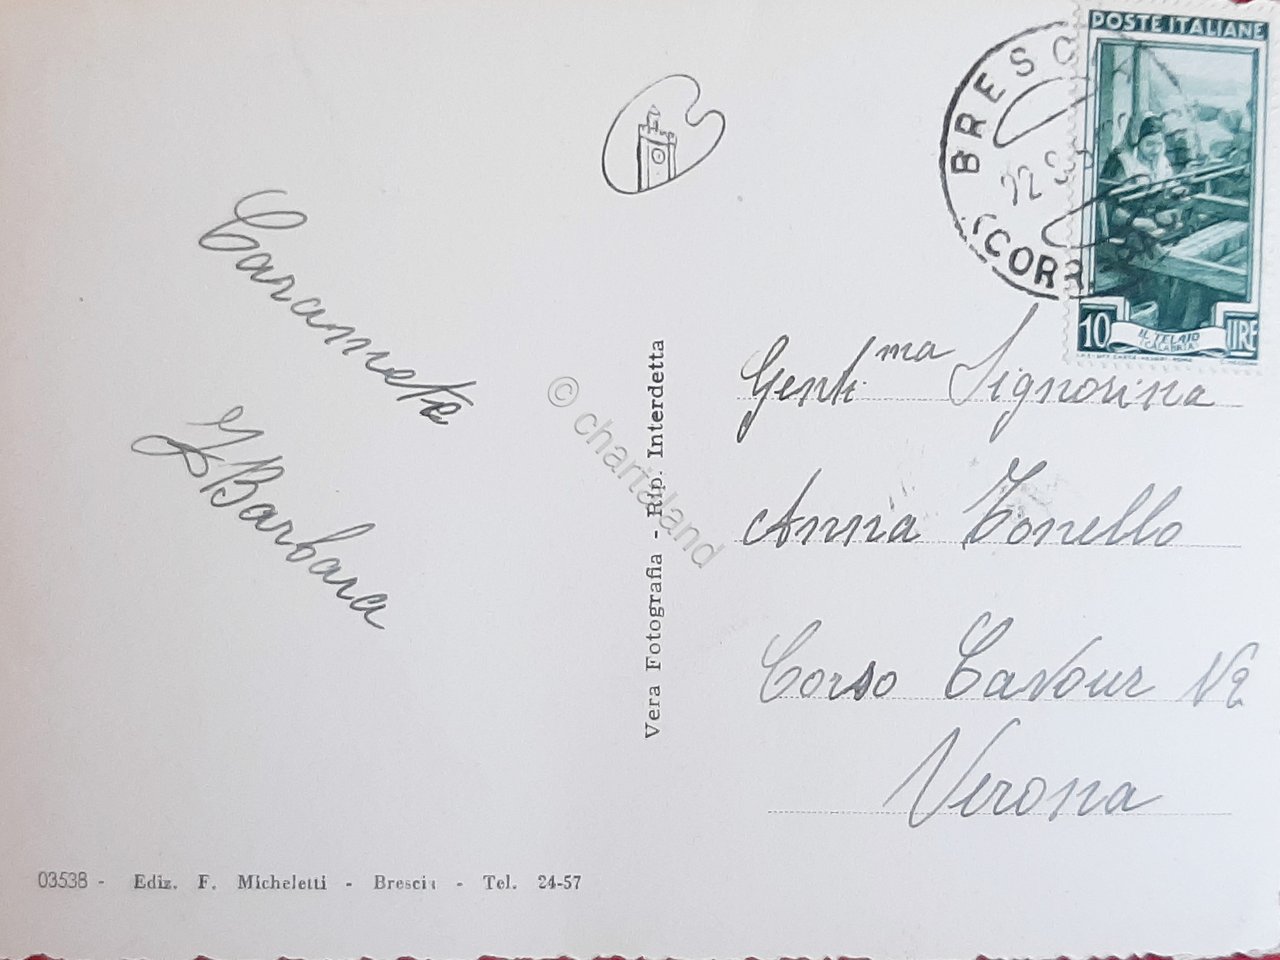 POSTE ITALIANE
BRESCIA
22
(CORR
10 LIRE
IL TELAIO
(CALABRIA)
Caramete
Barbara
Vera Fotografia - Rip. Interdetta
© chartaland
Gent.ma Signorina
Anna Tonello
Corso Cavour
Verona
03538 - Ediz. F. Micheletti - Brescia - Tel. 24-57